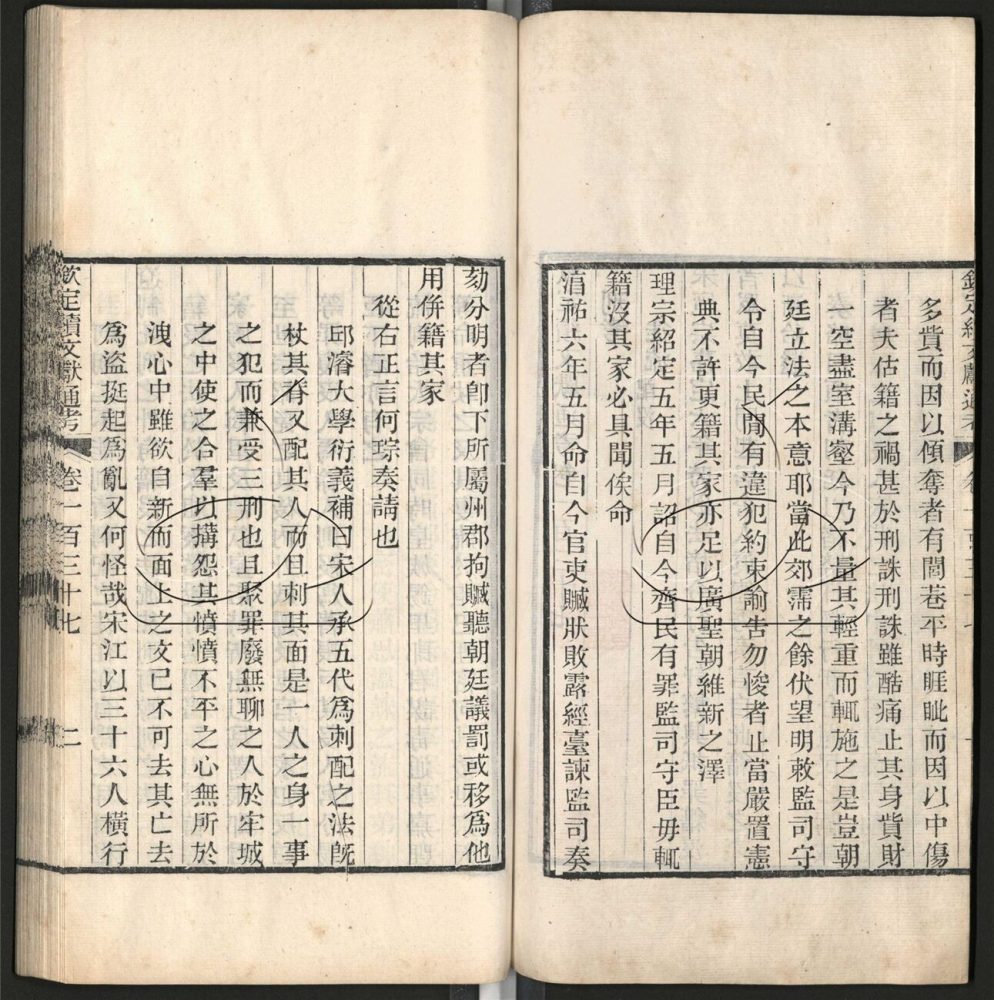 多貲而因以傾奪者有閭巷平時睚眦而因以中傷
者夫估籍之禍甚於刑誅刑誅雖酷痛止其身貲財
一空盡室溝壑今乃不量其輕重而輒施之是豈朝
廷立法之本意耶當此郊霈之餘伏望明敕監司守
令自今民閒有違犯約束諭吿勿悛者止當嚴置憲
典不許更籍其家亦足以廣聖朝維新之澤
理宗紹定五年五月詔自今齊民有罪監司守臣毋輒
籍沒其家必具聞俟命
湻祐六年五月命自今官吏贓狀敗露經臺諫監司奏
劾分明者卽下所屬州郡拘贓聽朝廷議罰或移爲他
用併籍其家
從右正言何琮奏請也
邱濬大學衍義補曰宋人承五代爲刺配之法旣
杖其脊又配其人而且刺其面是一人之身一事
之犯而兼受三刑也且聚罪廢無聊之人於牢城
之中使之合羣以搆怨其憤憤不平之心無所於
洩心中雖欲自新而面上之文已不可去其亡去
爲盜挺起爲亂又何怪哉宋江以三十六人橫行
欽定續文獻通考 卷一百三十七 二